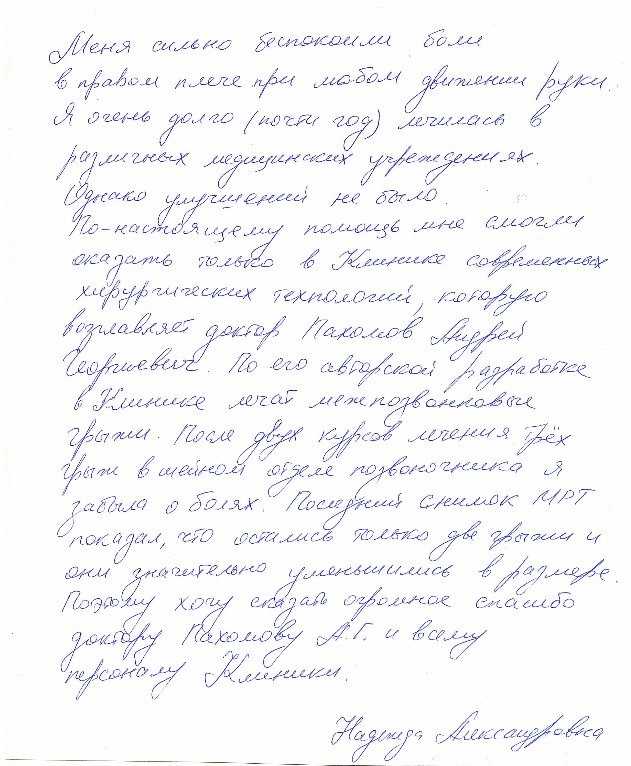 Меня сильно беспокоили боли
в правом плече при любом движении руки.
Я очень долго (почти год) лечилась в
различных медицинских учреждениях.
Однако улучшений не было.
По-настоящему помощь мне смогли
оказать только в Клинике современных
хирургических технологий, которую
возглавляет доктор Пахомов Андрей
Георгиевич. По его авторской разработке
в Клинике лечат межпозвонковые
грыжи. После двух курсов лечения трёх
грыж в шейном отделе позвоночника я
забыла о болях. Последний снимок МРТ
показал, что остались только две грыжи и
они значительно уменьшились в размере.
Поэтому хочу сказать огромное спасибо
доктору Пахомову А.Г. и всему
персоналу Клиники.
Надежда Александровна